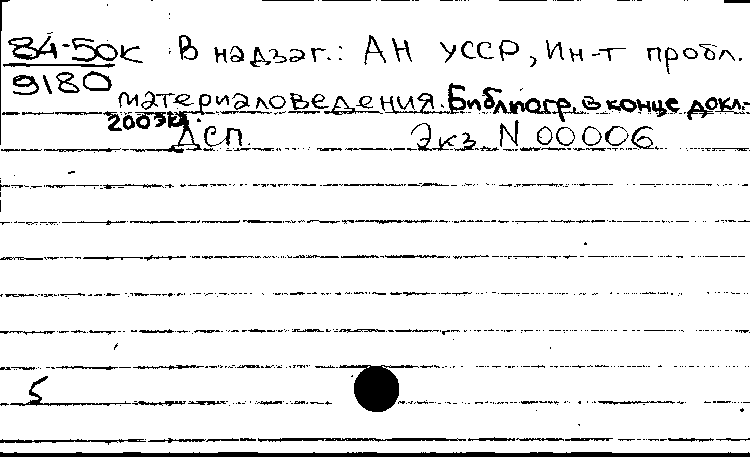 84-50к В надзаг.: АН УССР, Ин-т пробл.
9180
материаловедения. Библиогр. в конце докл.
200экз.
Дсп. Экз. N 00006
5